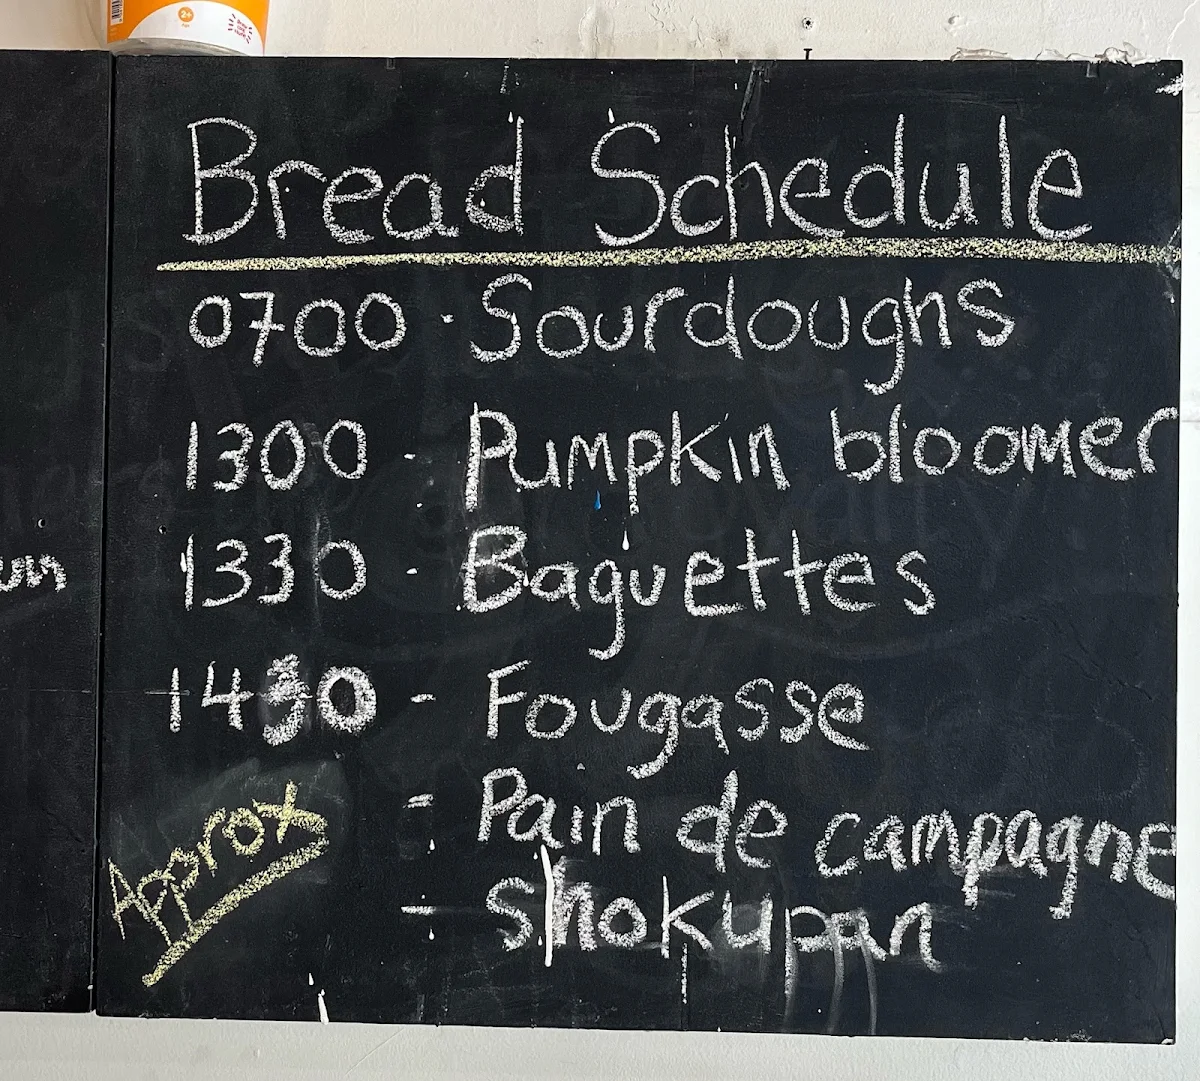 2+
Bread Schedule
0700 - Sourdoughs
1300 - Pumpkin bloomer
1330 - Baguettes
1430 - Fougasse
- Pain de campagne
- Shokupan
Approx